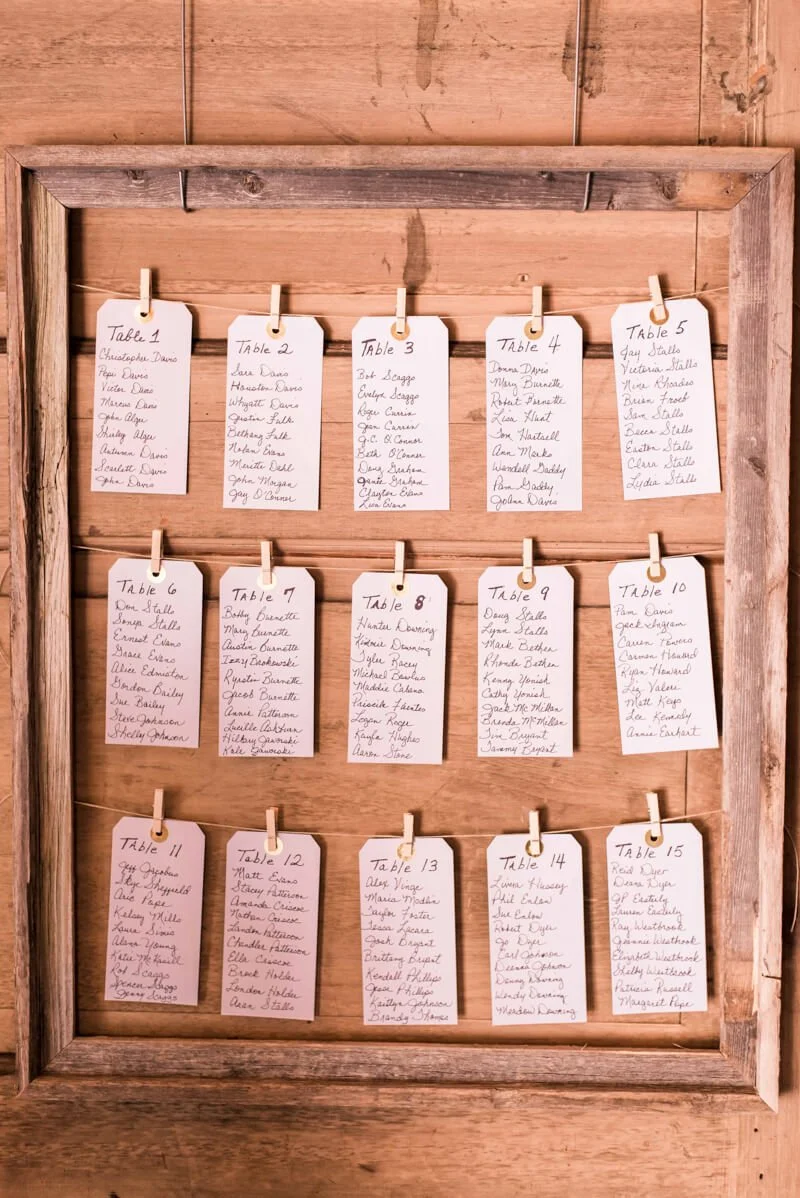 Table 1
Christopher Davis
Pepi Davis
Victor Davis
Marcus Davis
John Alger
Shirley Alger
Autumn Davis
Scarlett Davis
John Davis
Table 2
Sara Davis
Houston Davis
Whyatt Davis
Justin Fulk
Bethany Fulk
Nolan Evans
Merette Dehl
John Morgan
Jay O'Conner
Table 3
Bob Scaggs
Evelyn Scaggs
Roger Currin
Jean Curran
J.C. O'Connor
Beth O'Conner
Doug Graham
Janie Graham
Clayton Evans
Lisa Evans
Table 4
Donna Davis
Mary Burnette
Robert Burnette
Lisa Hunt
Tom Hartsell
Ann Marks
Wendell Gaddy
Pam Gaddy
JoAnn Davis
Table 5
Jay Stalls
Victoria Stalls
Nina Rhoades
Brian Frost
Sam Stalls
Becca Stalls
Easton Stalls
Clara Stalls
Lydia Stalls
Table 6
Don Stalls
Sonya Stalls
Ernest Evans
Grace Evans
Alice Edmiston
Gordon Bailey
Sue Bailey
Steve Johnson
Shelby Johnson
Table 7
Bobby Burnette
Mary Burnette
Austin Burnette
Izzy Backowski
Kyrstin Burnette
Jacob Burnette
Annie Patterson
Lucille Ashburn
Hilkiary Jaworski
Kale Jaworski
Table 8
Hunter Downing
Kimmie Downing
Tyler Kacey
Michael Bowlus
Maddie Cabano
Priscila Fuentes
Logan Roger
Kayla Hughes
Aaron Stone
Table 9
Doug Stalls
Lynn Stalls
Mark Bethea
Rhonda Bethea
Kenny Yonish
Cathy Yonish
Jack McMillan
Brenda McMillan
Tim Bryant
Tammy Bryant
Table 10
Pam Davis
Jack Ingram
Carren Powers
Carmen Howard
Ryan Howard
Liz Valere
Matt Keys
Lee Kennedy
Annie Earhart
Table 11
Jeff Jacobus
Skye Sheffield
Aric Pape
Kelsey Mills
Laura Simis
Alana Young
Katie McKasell
Rob Scaggs
Spencer Scaggs
Jenny Scaggs
Table 12
Matt Evans
Stacey Patterson
Amanda Criscoe
Nathan Criscoe
Landon Patterson
Chandler Patterson
Ella Criscoe
Brock Holder
London Holder
Aran Stalls
Table 13
Alex Vinge
Maria Modlin
Taylor Foster
Tessa Lacara
Josh Bryant
Brittany Bryant
Kendell Phillips
Jesse Phillips
Kaitlyn Johnson
Brandy Thomas
Table 14
Linna Hussey
Phil Enlow
Sue Enlow
Robert Dyer
Jo Dyer
Earl Johnson
Deanna Johnson
Danny Downing
Wendy Downing
Meadow Downing
Table 15
Reid Dyer
Deana Dyer
GP Easterly
Lauren Easterly
Ray Westbrook
Jeannie Westbrook
Elizabeth Westbrook
Shelby Westbrook
Patricia Russell
Margaret Pope